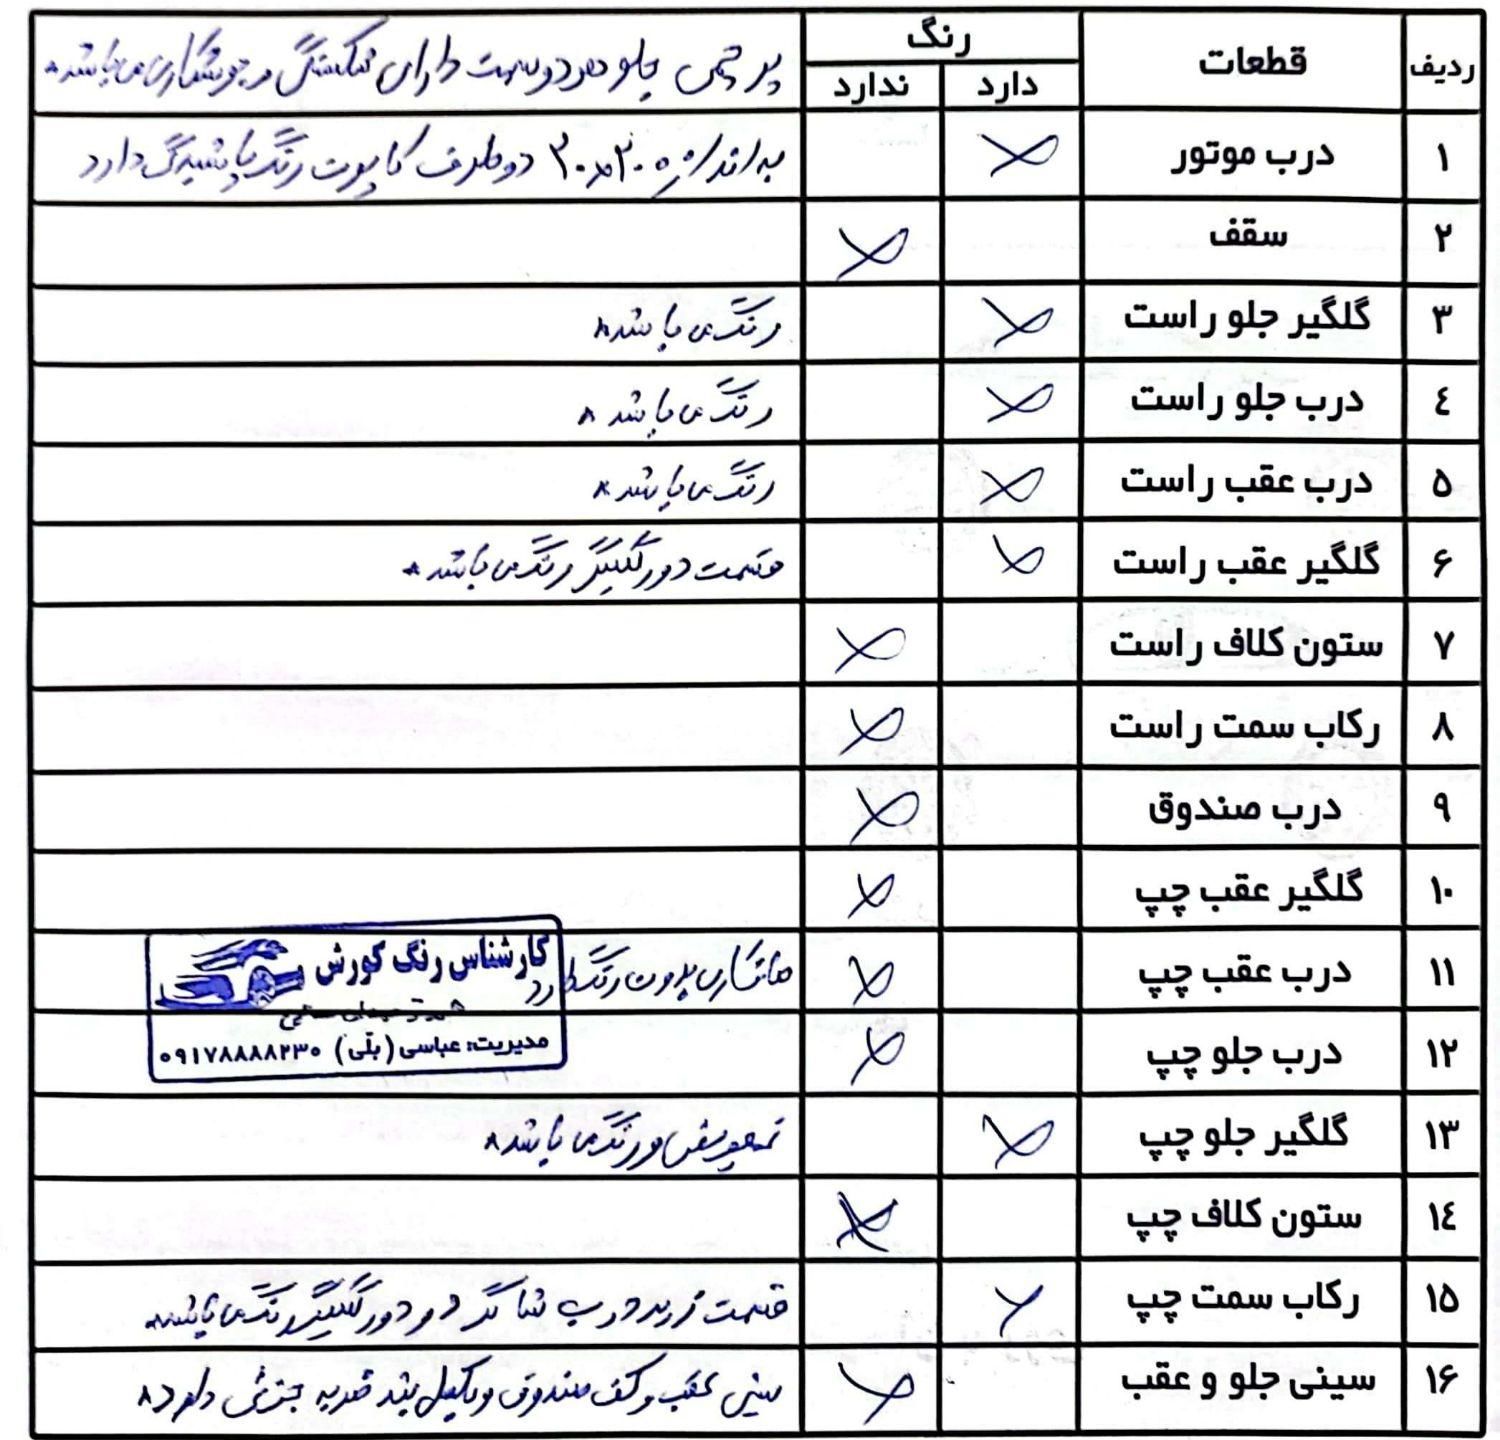 ردیف قطعات رنگ
دارد ندارد
پرچمی جلو هر دو سمت دارای شکستگی و جوشکاری می باشد
۱ درب موتور به اندازه ۳۰×۳۰ دو طرف کاپوت رنگ پاشیدگی دارد
۲ سقف
۳ گلگیر جلو راست رنگ می باشد
٤ درب جلو راست رنگ می باشد
۵ درب عقب راست رنگ می باشد
۶ گلگیر عقب راست قسمت دور گلگیر رنگ می باشد
۷ ستون کلاف راست
۸ رکاب سمت راست
۹ درب صندوق
۱۰ گلگیر عقب چپ
۱۱ درب عقب چپ صافکاری بدون رنگ دارد
۱۲ درب جلو چپ
۱۳ گلگیر جلو چپ تعویض و رنگ می باشد
۱٤ ستون کلاف چپ
۱۵ رکاب سمت چپ قسمت زیر درب شاگرد و دور گلگیر رنگ می باشد
۱۶ سینی جلو و عقب سینی عقب و کف صندوق وکیل بند ضربه جزئی دارد
کارشناس رنگ کورش
مدیریت: عباسی (بلّی) ۰۹۱۷۸۸۸۸۲۳۰